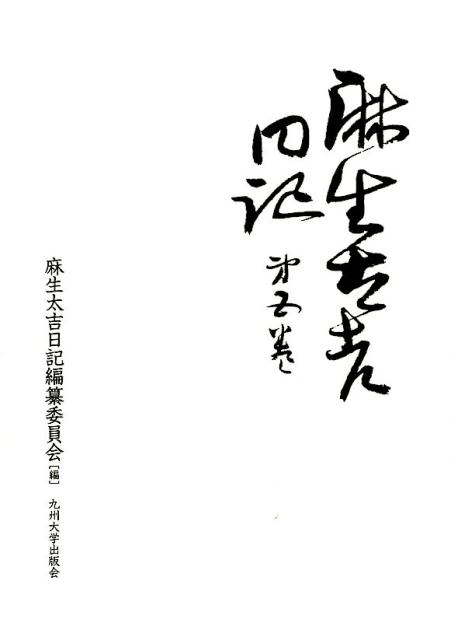 麻生太吉
日記
第五巻
麻生太吉日記編纂委員会[編]
九州大学出版会